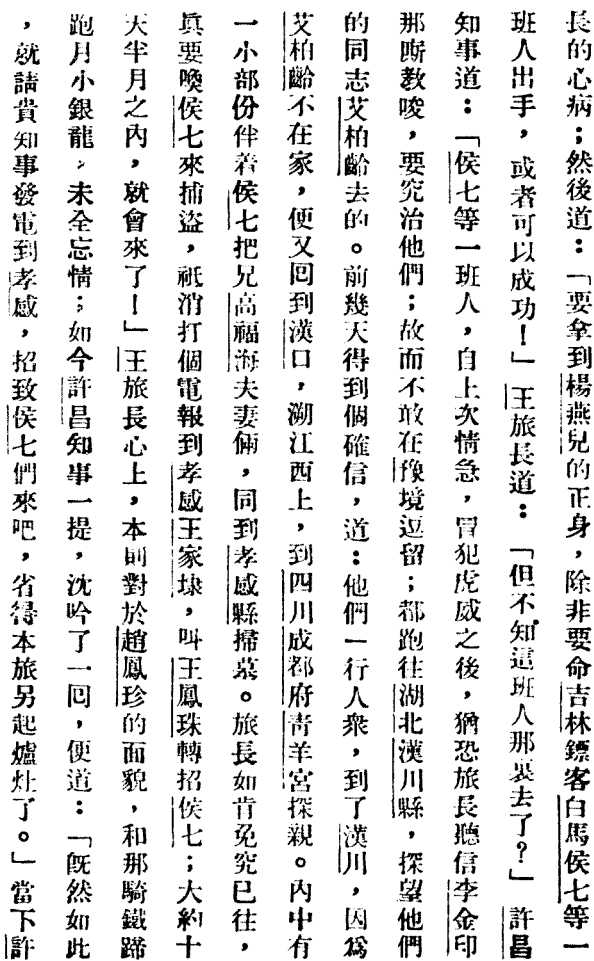 長的心病；然後道：「要拿到楊燕兒的正身，除非要命吉林鏢客白馬侯七等一
班人出手，或者可以成功！」王旅長道：「但不知這班人那裏去了？」許昌
知事道：「侯七等一班人，自上次情急，冒犯虎威之後，猶恐旅長聽信李金印
那厮教唆，要究治他們；故而不敢在豫境逗留；都跑往湖北漢川縣，探望他們
的同志艾柏齡去的。前幾天得到個確信，道：他們一行人衆，到了漢川，因爲
艾柏齡不在家，便又囘到漢口，溯江西上，到四川成都府靑羊宮探親。內中有
一小部份伴着侯七把兄高福海夫妻倆，同到孝感縣掃墓。旅長如肯免究已往，
眞要喚侯七來捕盜，祇消打個電報到孝感王家埭，叫王鳳珠轉招侯七；大約十
天半月之內，就會來了！」王旅長心上，本則對於趙鳳珍的面貌，和那騎鐵蹄
跑月小銀龍，未全忘情；如今許昌知事一提，沈吟了一囘，便道：「旣然如此
，就請貴知事發電到孝感，招致侯七們來吧，省得本旅另起爐灶了。」當下許